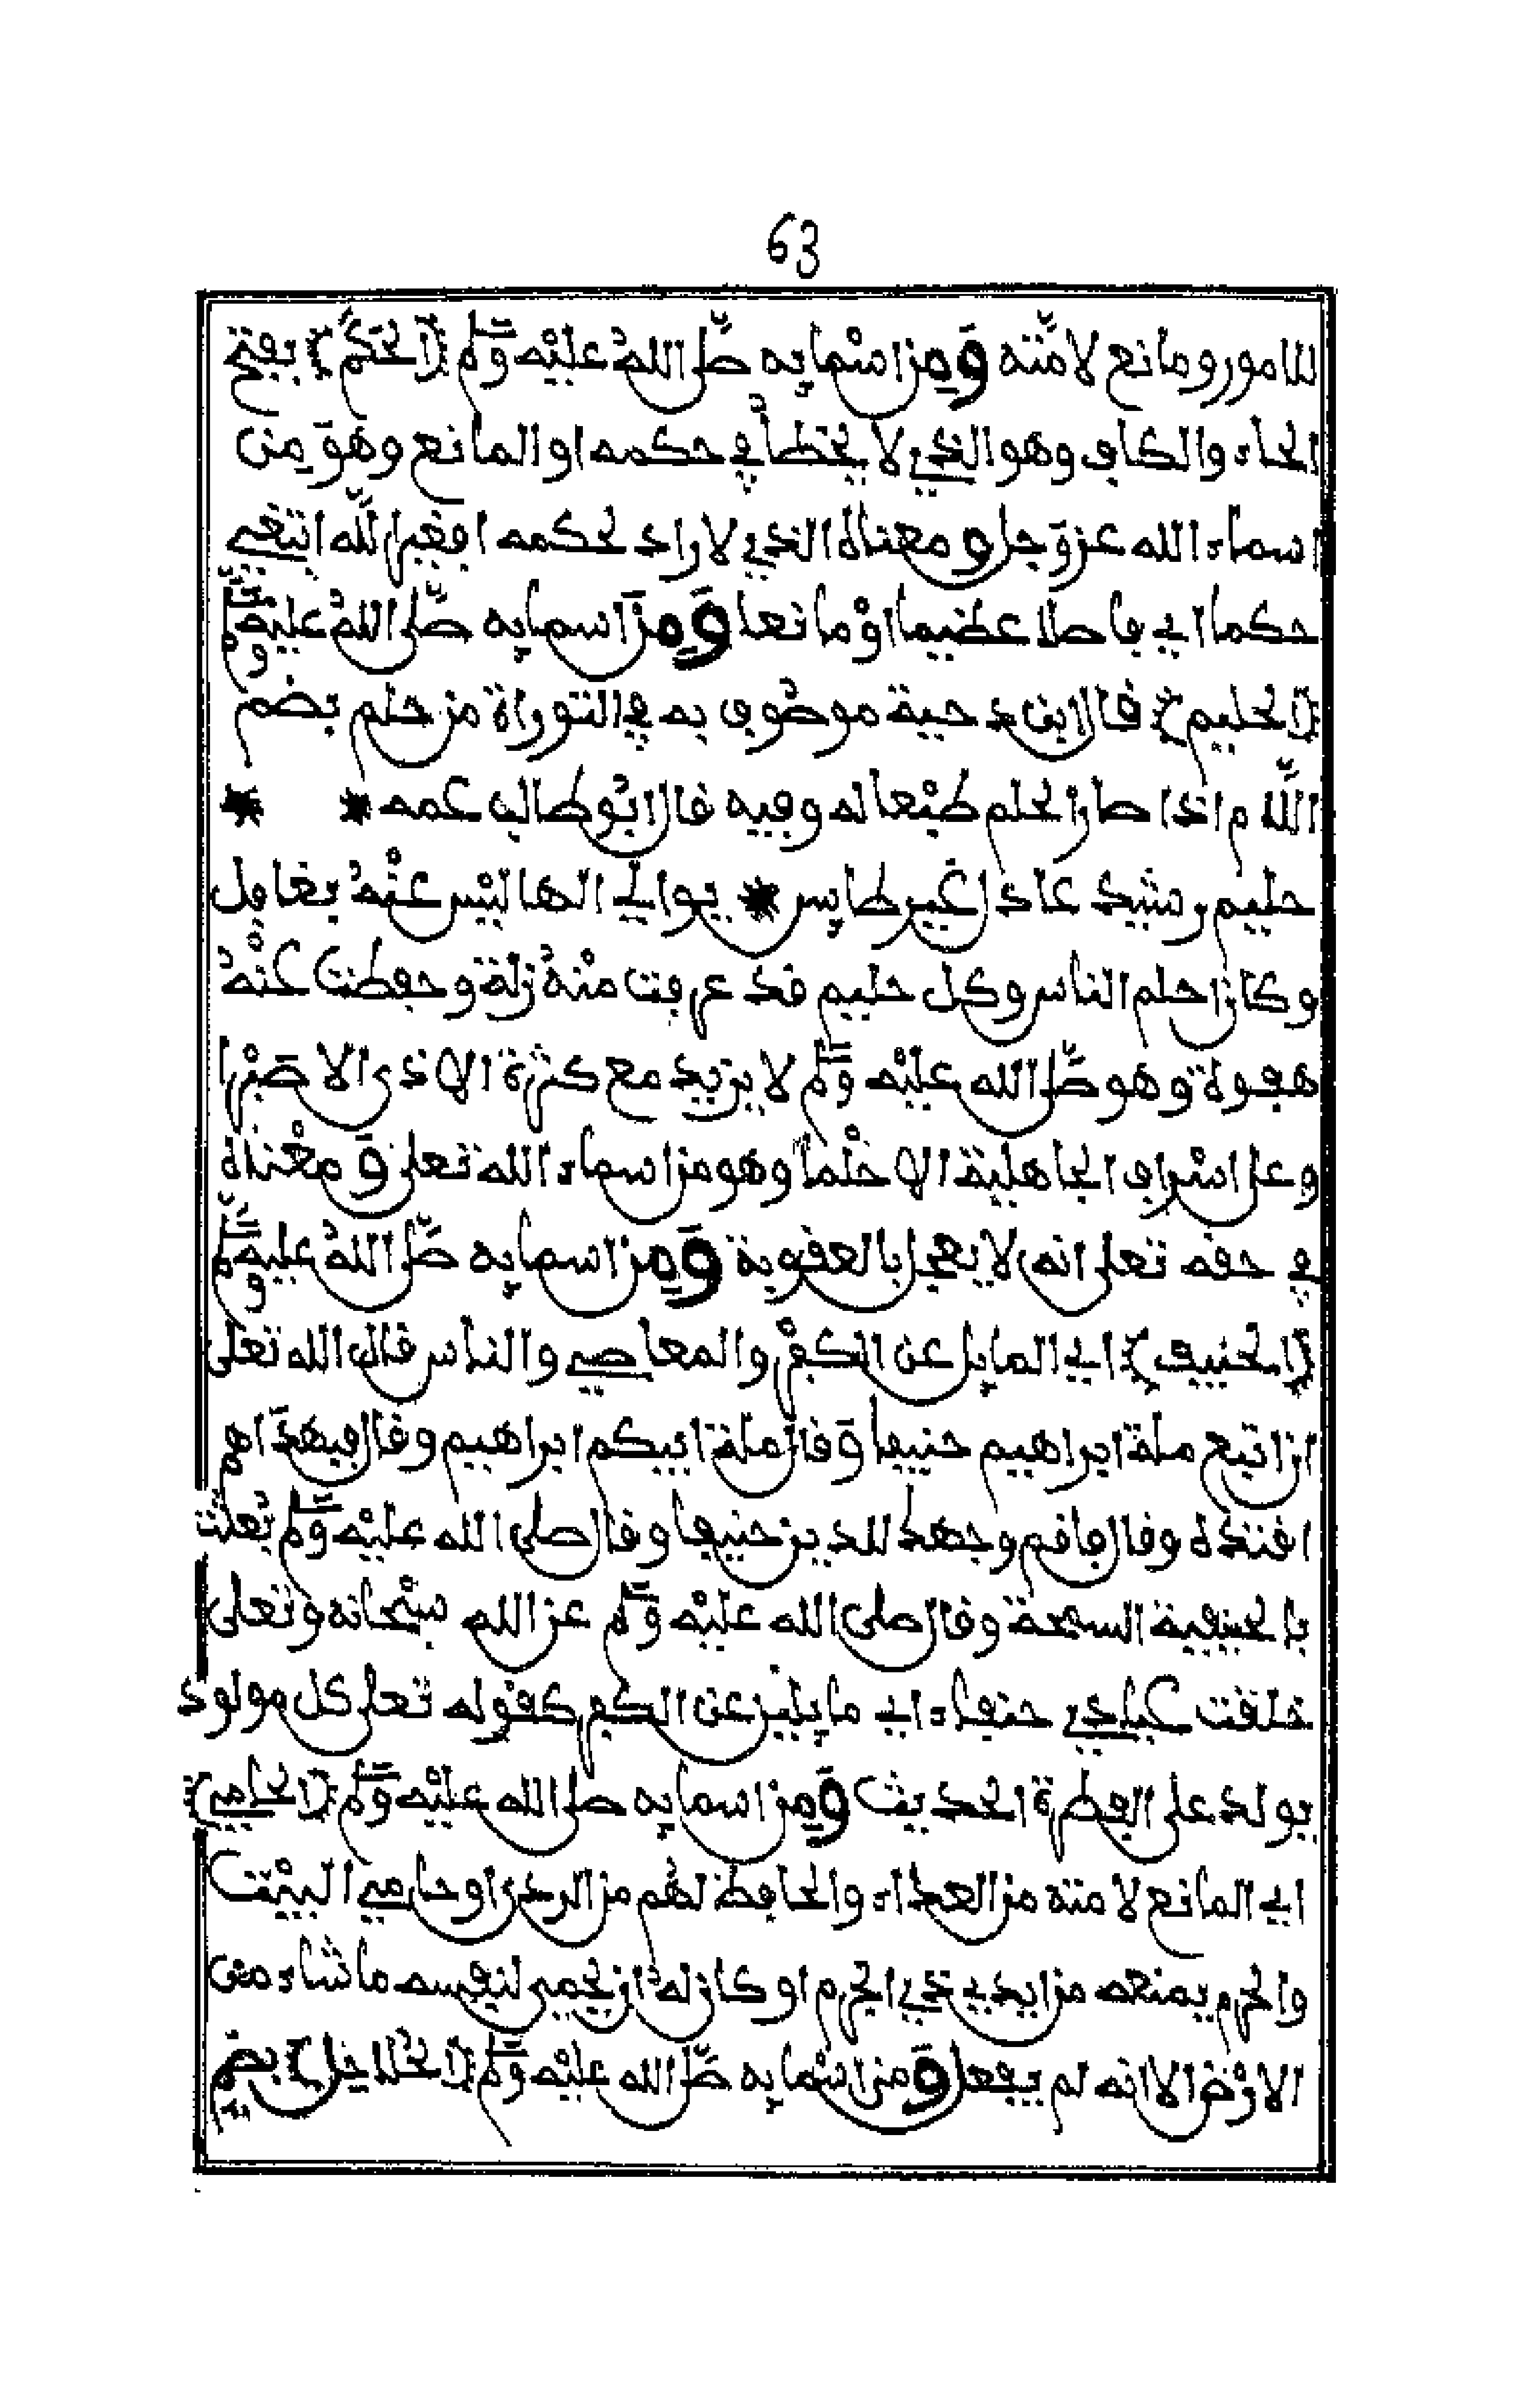 63
للامور ومانع لامته ومن اسمايه صلى الله عليه وسلم {الحكم} بفتح
الحاء والكاف وهو الذي لا يخطأ في حكمه او المانع وهو من
اسماء الله عز وجل ومعناه الذي لا راد لحكمه افغير الله ابتغي
حكما اي فاصلا عظيما او مانعا ومن اسمايه صلى الله عليه وسلم
{الحليم} قال ابن دحية موصوف به في التوراة من حلم بضم
اللام اذا صار الحلم طبعا له وفيه قال ابو طالب عمه * *
حليم رشيد عادل غير طايش * يوالي الها ليس عنه بغافل
وكان احلم الناس وكل حليم قد عرفت منه زلة وحفظت عنه
هفوة وهو صلى الله عليه وسلم لا يزيد مع كثرة الاذى الا صبرا
وعلى اسراف الجاهلية الا حلما وهو من اسماء الله تعلى ومعناه
في حقه تعلى انه لا يعجل بالعقوبة ومن اسمايه صلى الله عليه وسلم
{الحنيف} اي المايل عن الكفر والمعاصي والناس قال الله تعلى
ان اتبع ملة ابراهيم حنيفا وقال ملة ابيكم ابراهيم وقال فبهداهم
اقتده وقال فاقم وجهك للدين حنيفا وقال صلى الله عليه وسلم بعثت
بالحنيفية السمحة وقال صلى الله عليه وسلم عن الله سبحانه وتعلى
خلقت عبادي حنفاء اي مايلين عن الكفر كقوله تعلى كل مولود
يولد على الفطرة الحديث ومن اسمايه صلى الله عليه وسلم {الحامي}
اي المانع لامته من العداء والحافظ لهم من الردى او حامي البيت
والحرم يمنعه من ايدي ذي الجرم او كان له ان يحمي لنفسه ما شاء من
الارض الا انه لم يفعل ومن اسمايه صلى الله عليه وسلم {الحلاحل} بضم